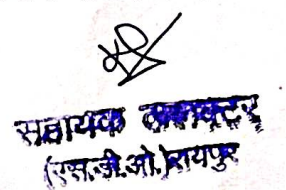 सहायक कलेक्टर
(एस.डी.ओ.)रायपुर